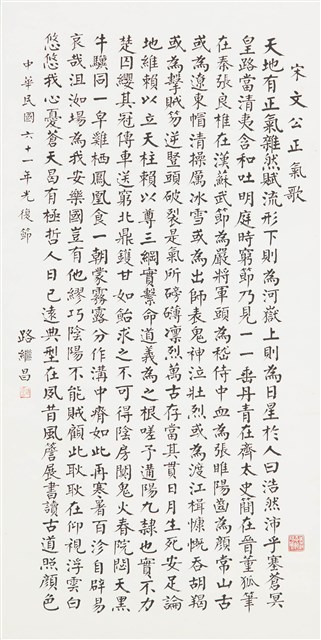 宋文公正氣歌
天地有正氣雜然賦流形下則為河嶽上則為日星於人曰浩然沛乎塞蒼冥
皇路當清夷含和吐明庭時窮節乃見一一垂丹青在齊太史簡在晉董狐筆
在秦張良椎在漢蘇武節為嚴將軍頭為嵇侍中血為張睢陽齒為顏常山舌
或為遼東帽清操厲冰雪或為出師表鬼神泣壯烈或為渡江楫慷慨吞胡羯
或為擊賊笏逆豎頭破裂是氣所磅礴凜烈萬古存當其貫日月生死安足論
地維賴以立天柱賴以尊三綱實繫命道義為之根嗟予遘陽九隸也實不力
楚囚纓其冠傳車送窮北鼎鑊甘如飴求之不可得陰房闃鬼火春院閟天黑
牛驥同一皁雞棲鳳凰食一朝蒙霧露分作溝中瘠如此再寒暑百沴自辟易
哀哉沮洳場為我安樂國豈有他繆巧陰陽不能賊顧此耿耿在仰視浮雲白
悠悠我心憂蒼天曷有極哲人日已遠典型在夙昔風簷展書讀古道照顏色
中華民國六十一年光復節
路繼昌